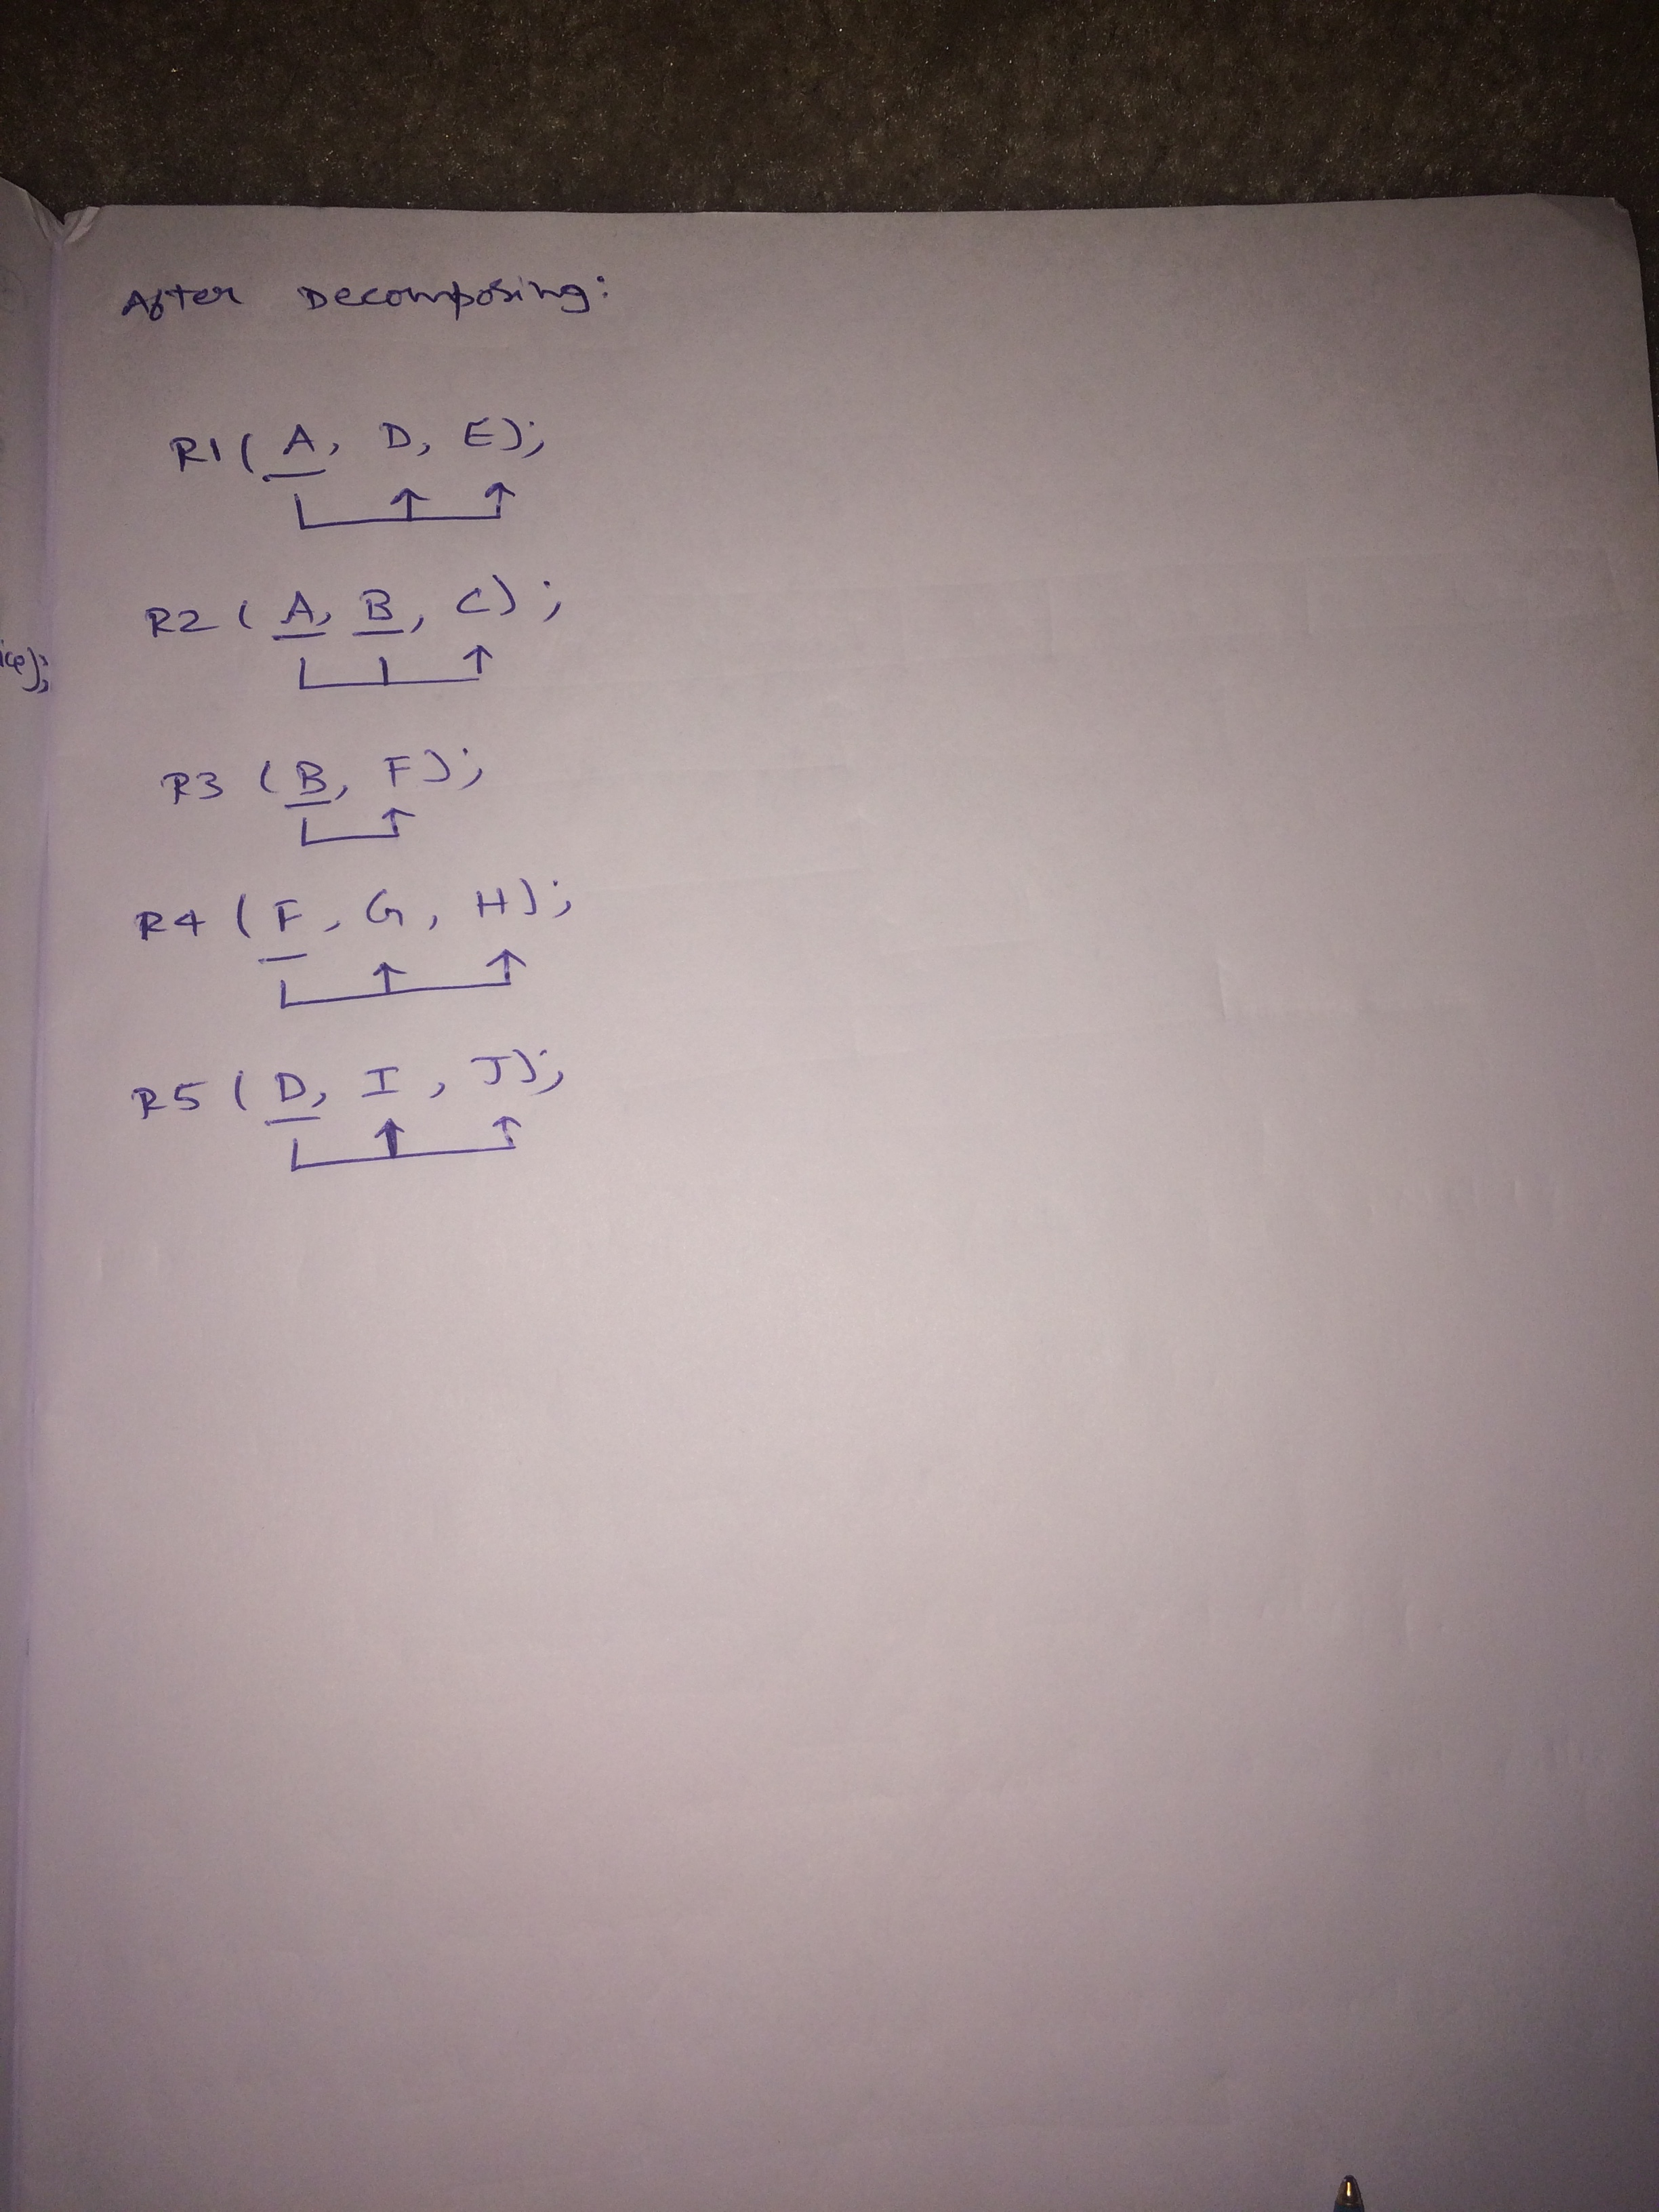 After Decomposing:
R1 ( A, D, E);
R2 ( A, B, C);
R3 ( B, F);
R4 ( F, G, H);
R5 ( D, I, J);